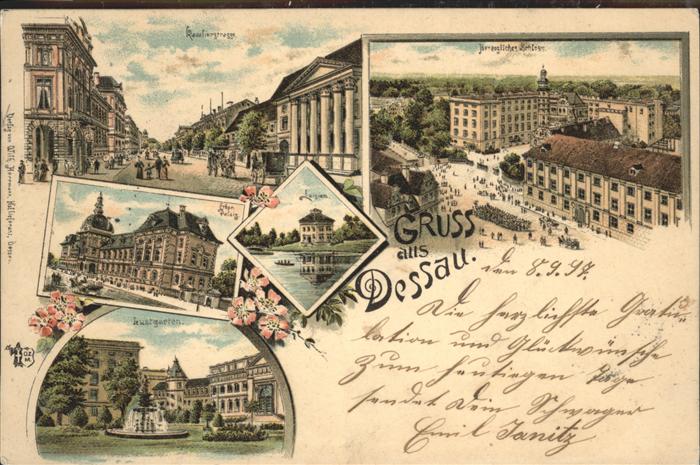 Cavalierstrasse.
Herzogliches Schloss.
Erbpr. Palais.
Luisium.
Lustgarten.
GRUSS
aus
Dessau.
den 8.9.97.
Die herzlichste Gratu-
lation und Glückwünsche
zum heutigen Tage
sendet Dein Schwager
Emil Janitz
Verlag von Wilh. Herrmann, Hoflieferant, Dessau.